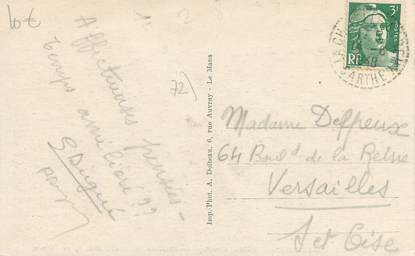 10€
Affectueuses pensées -
temps amélioré ??
72)
Imp.-Phot. A. Dolbeau, 6, rue Auvray - Le Mans
3F
RF
SARTHE
Madame Delpreux
64 Boul.d de la Reine
Versailles
S et Oise